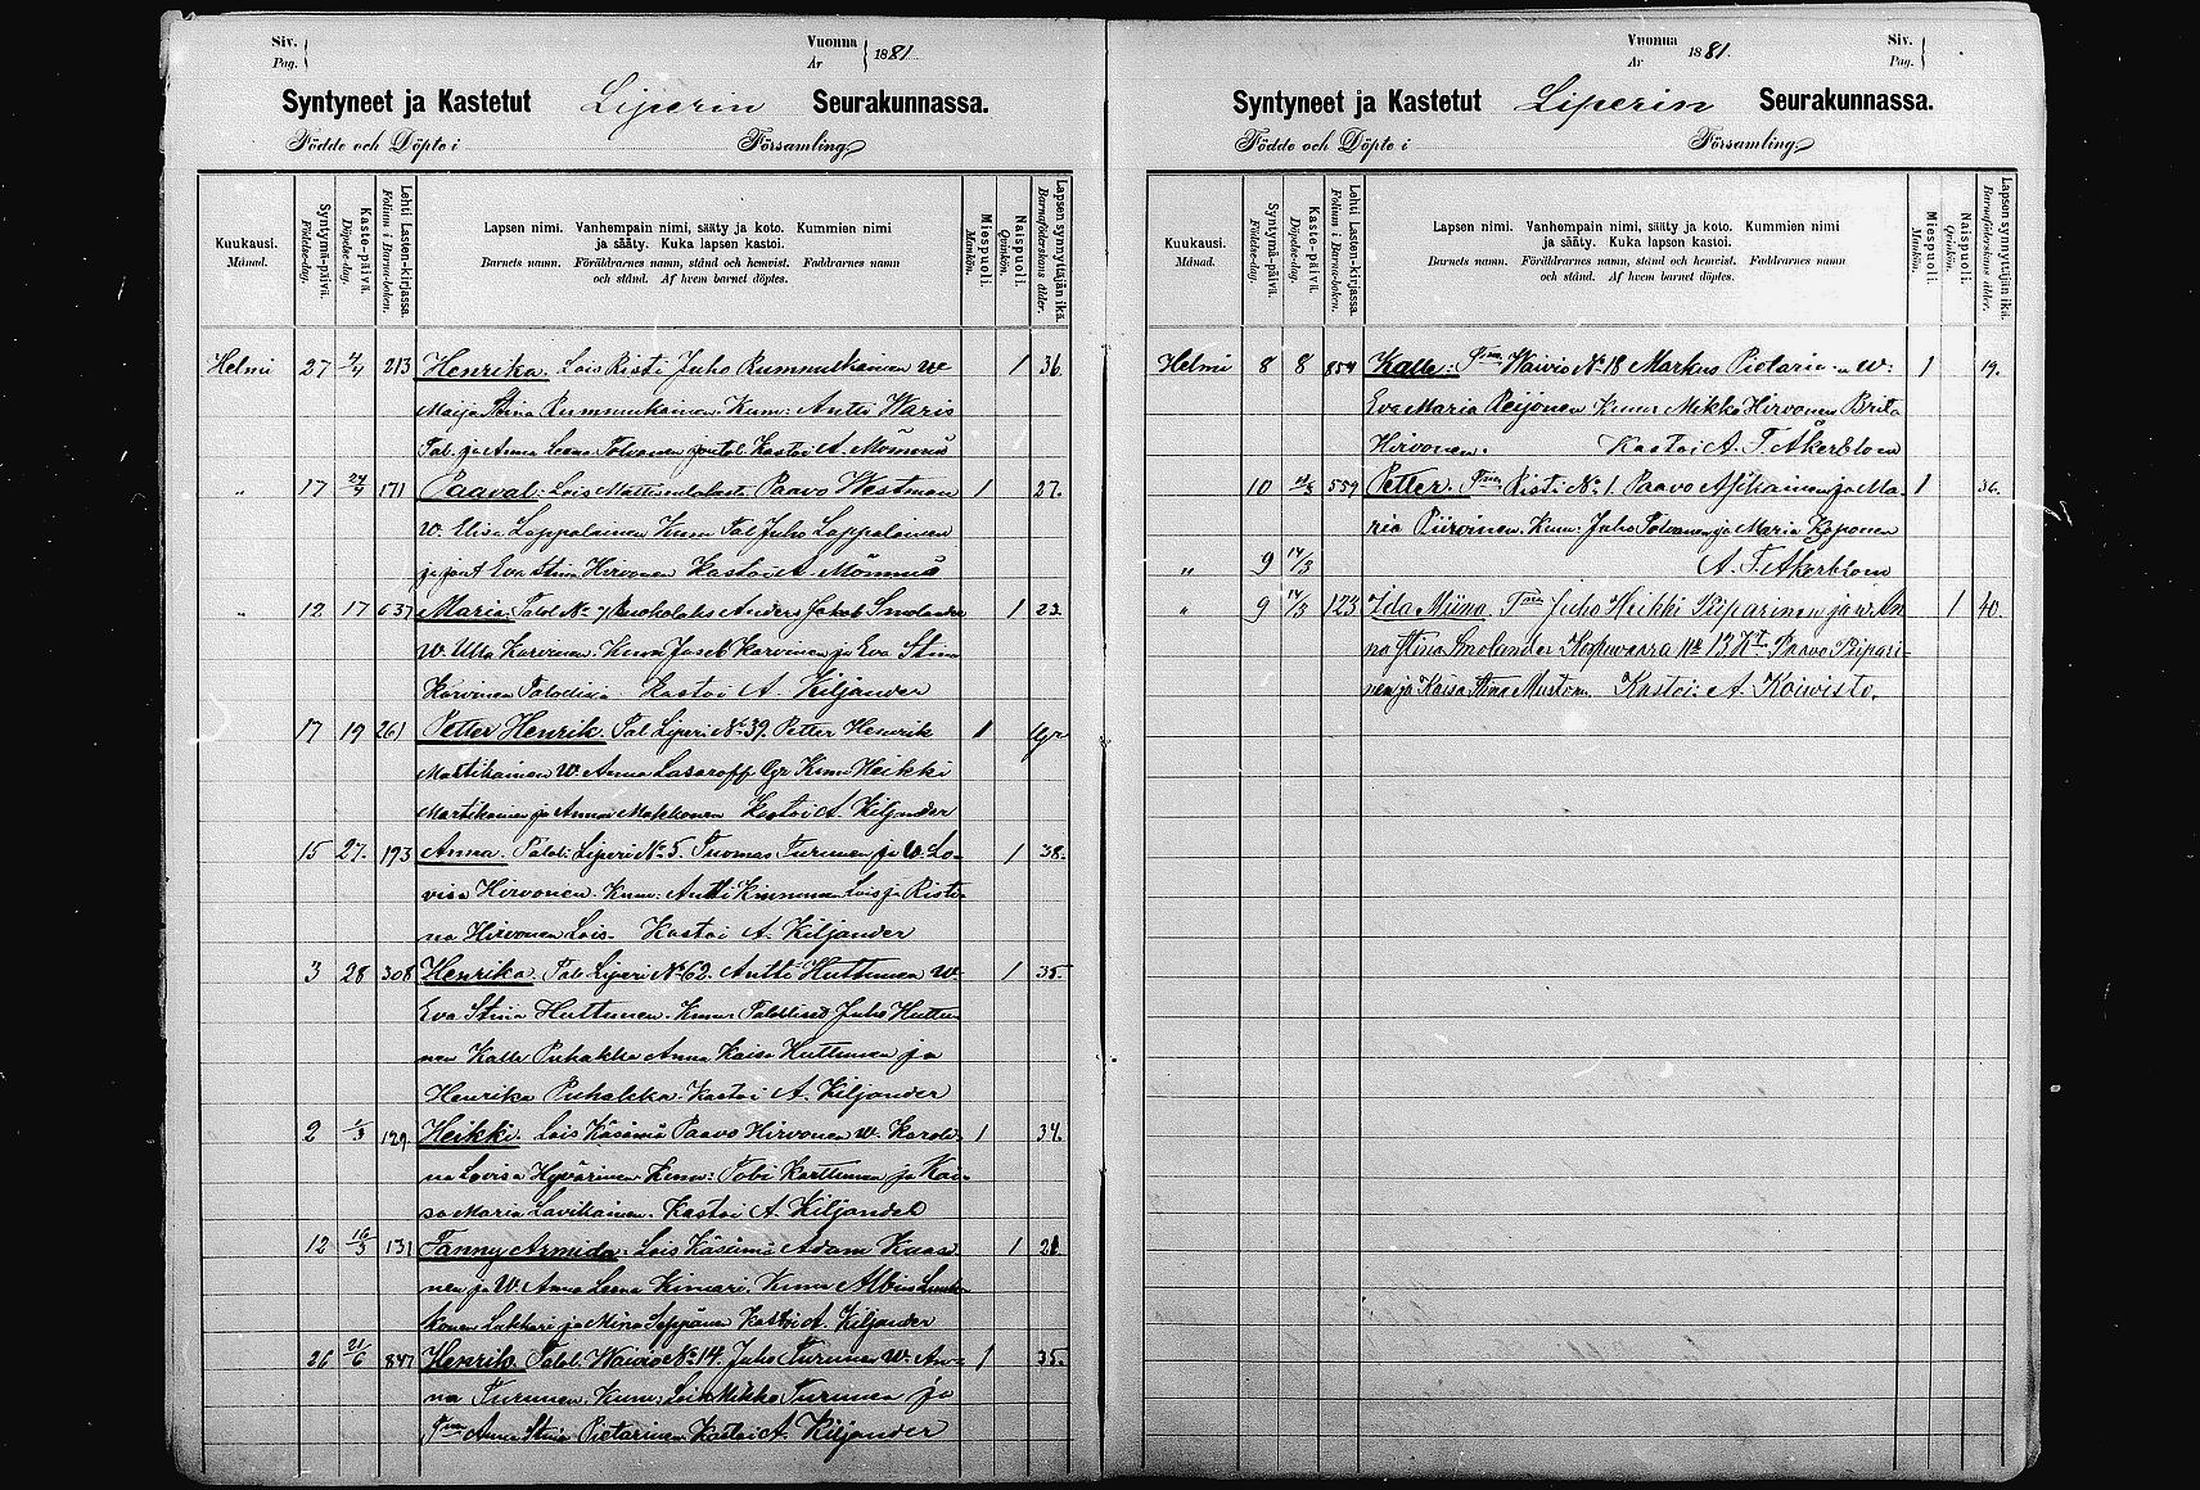 Siv.
Pag.
Vuonna
År
1881
Syntyneet ja Kastetut Liperin Seurakunnassa.
Födde och Döpte i Församling
Kuukausi.
Månad.
Syntymä-päivä.
Födelse-dag.
Kaste-päivä.
Döpelse-dag.
Lehti Lasten-kirjassa.
Folium i Barna-boken.
Lapsen nimi. Vanhempain nimi, sääty ja koto. Kummien nimi
ja sääty. Kuka lapsen kastoi.
Barnets namn. Föräldrarnes namn, stånd och hemvist. Faddrarnes namn
och stånd. Af hvem barnet döptes.
Miespuoli.
Mankön.
Naispuoli.
Qvinkön.
Lapsen synnyttäjän ikä.
Barnaföderskans ålder.
Helmi 27 4/4 213 Henrika. Lois Risti Juho Rummukainen W 1 36.
Maija Stina Rummukainen. Kum: Antti Waris
Tal. ja Anna Leena Tolvanen Kastoi A.
" 17 24/4 171 Paaval: Lois Paavo Westman 1 27.
W. Elisa Lappalainen Kum Tal Juho Lappalainen
ja Eva Stina Hirvonen Kastoi A.
" 12 17 637 Maria. Talol No 7 Anders Jakob Smolander 1 23
W. Ulla Karvinen. Kum Josef Karvinen ja Eva Stina
Karvinen Kastoi A. Kiljander
17 19 261 Petter Henrik. Tal Liperi No 39. Petter Henrik 1
Martikainen W. Anna Lasaroff Kum Heikki
Martikainen ja Anna Makkonen Kastoi A. Kiljander
15 27. 193 Anna. Talol: Liperi No 5. Tuomas Turunen ja W. Lo- 1 38.
visa Hirvonen. Kum: Antti Kinnunen Lois ja Risti-
na Hirvonen Lois. Kastoi A. Kiljander
3 28 308 Henrika. Tal. Liperi No 62. Antti Huttunen W. 1 35.
Eva Stina Huttunen. Kum Juho Huttu
nen Kalle Puhakka Anna Kaisa Huttunen ja
Henrika Puhakka. Kastoi A. Kiljander
2 1/3 129 Heikki. Lois Käsämä Paavo Hirvonen W. Karoli- 1 34.
na Lovisa Hyvärinen Kum: Tobi Karttunen ja Kai-
sa Maria Lavikainen. Kastoi A. Kiljander
12 16/3 131 Fanny Armida. Lois Käsämä Adam 1
nen ja W. Anna Leena Kimari. Kum Albin
konen ja Mina Seppänen Kastoi A. Kiljander
26 21/6 847 Henrik. Talol. Waivio No 14. Juho Turunen W. An- 1 35.
na Turunen. Kum: Lois Mikko Turunen ja
Anna Stina Pietarinen Kastoi A. Kiljander
Vuonna
År
1881.
Siv.
Pag.
Syntyneet ja Kastetut Liperin Seurakunnassa.
Födde och Döpte i Församling
Kuukausi.
Månad.
Syntymä-päivä.
Födelse-dag.
Kaste-päivä.
Döpelse-dag.
Lehti Lasten-kirjassa.
Folium i Barna-boken.
Lapsen nimi. Vanhempain nimi, sääty ja koto. Kummien nimi
ja sääty. Kuka lapsen kastoi.
Barnets namn. Föräldrarnes namn, stånd och hemvist. Faddrarnes namn
och stånd. Af hvem barnet döptes.
Miespuoli.
Mankön.
Naispuoli.
Qvinkön.
Lapsen synnyttäjän ikä.
Barnaföderskans ålder.
Helmi 8 8 854 Kalle: Waivio No 18 Markus Pietarinen W: 1 19.
Eva Maria Reijonen Kum Mikko Hirvonen Brita
Hirvonen. Kastoi A. F. Åkerblom
10 559 Petter. Risti No 1. Paavo Asikainen ja Ma- 1 36.
ria Piiroinen. Kum: Juho Tolvanen ja Maria Koponen
" 9 14/3 A. F. Åkerblom
" 9 14/3 123 Ida Miina Juho Heikki Piiparinen ja w. An 1 40.
na Stina Smolander No 13 Paavo Piipari-
nen ja Kaisa Stina Muston. Kastoi: A. Koiwisto.